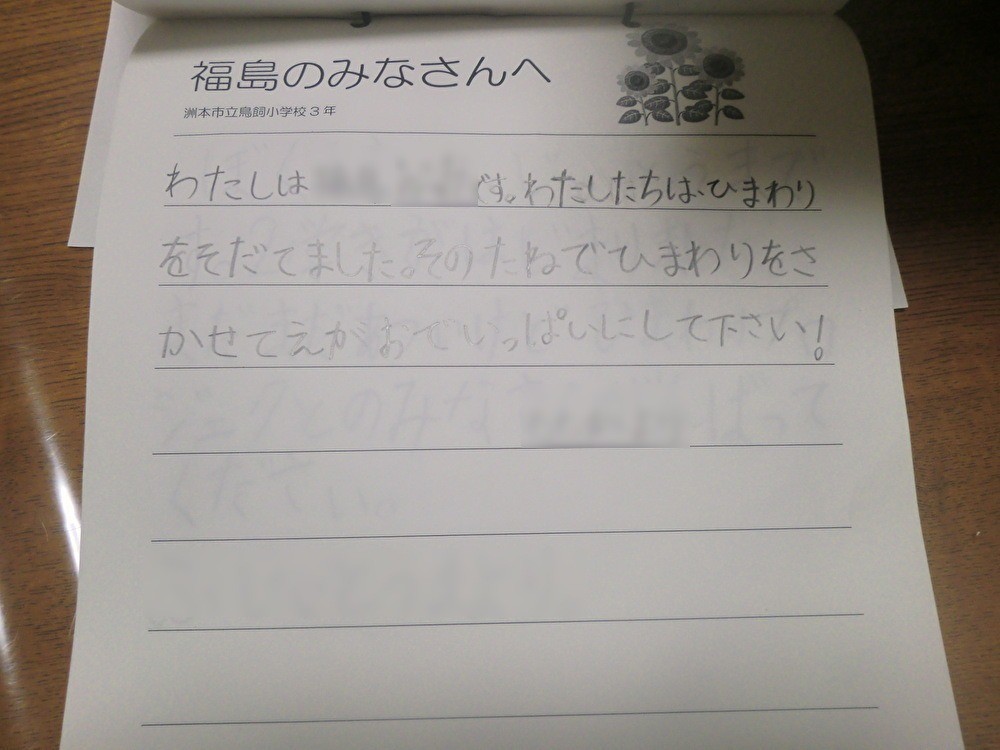 福島のみなさんへ
洲本市立鳥飼小学校3年
わたしは です。わたしたちは、ひまわり
をそだてました。そのたねでひまわりをさ
かせてえがおでいっぱいにして下さい!